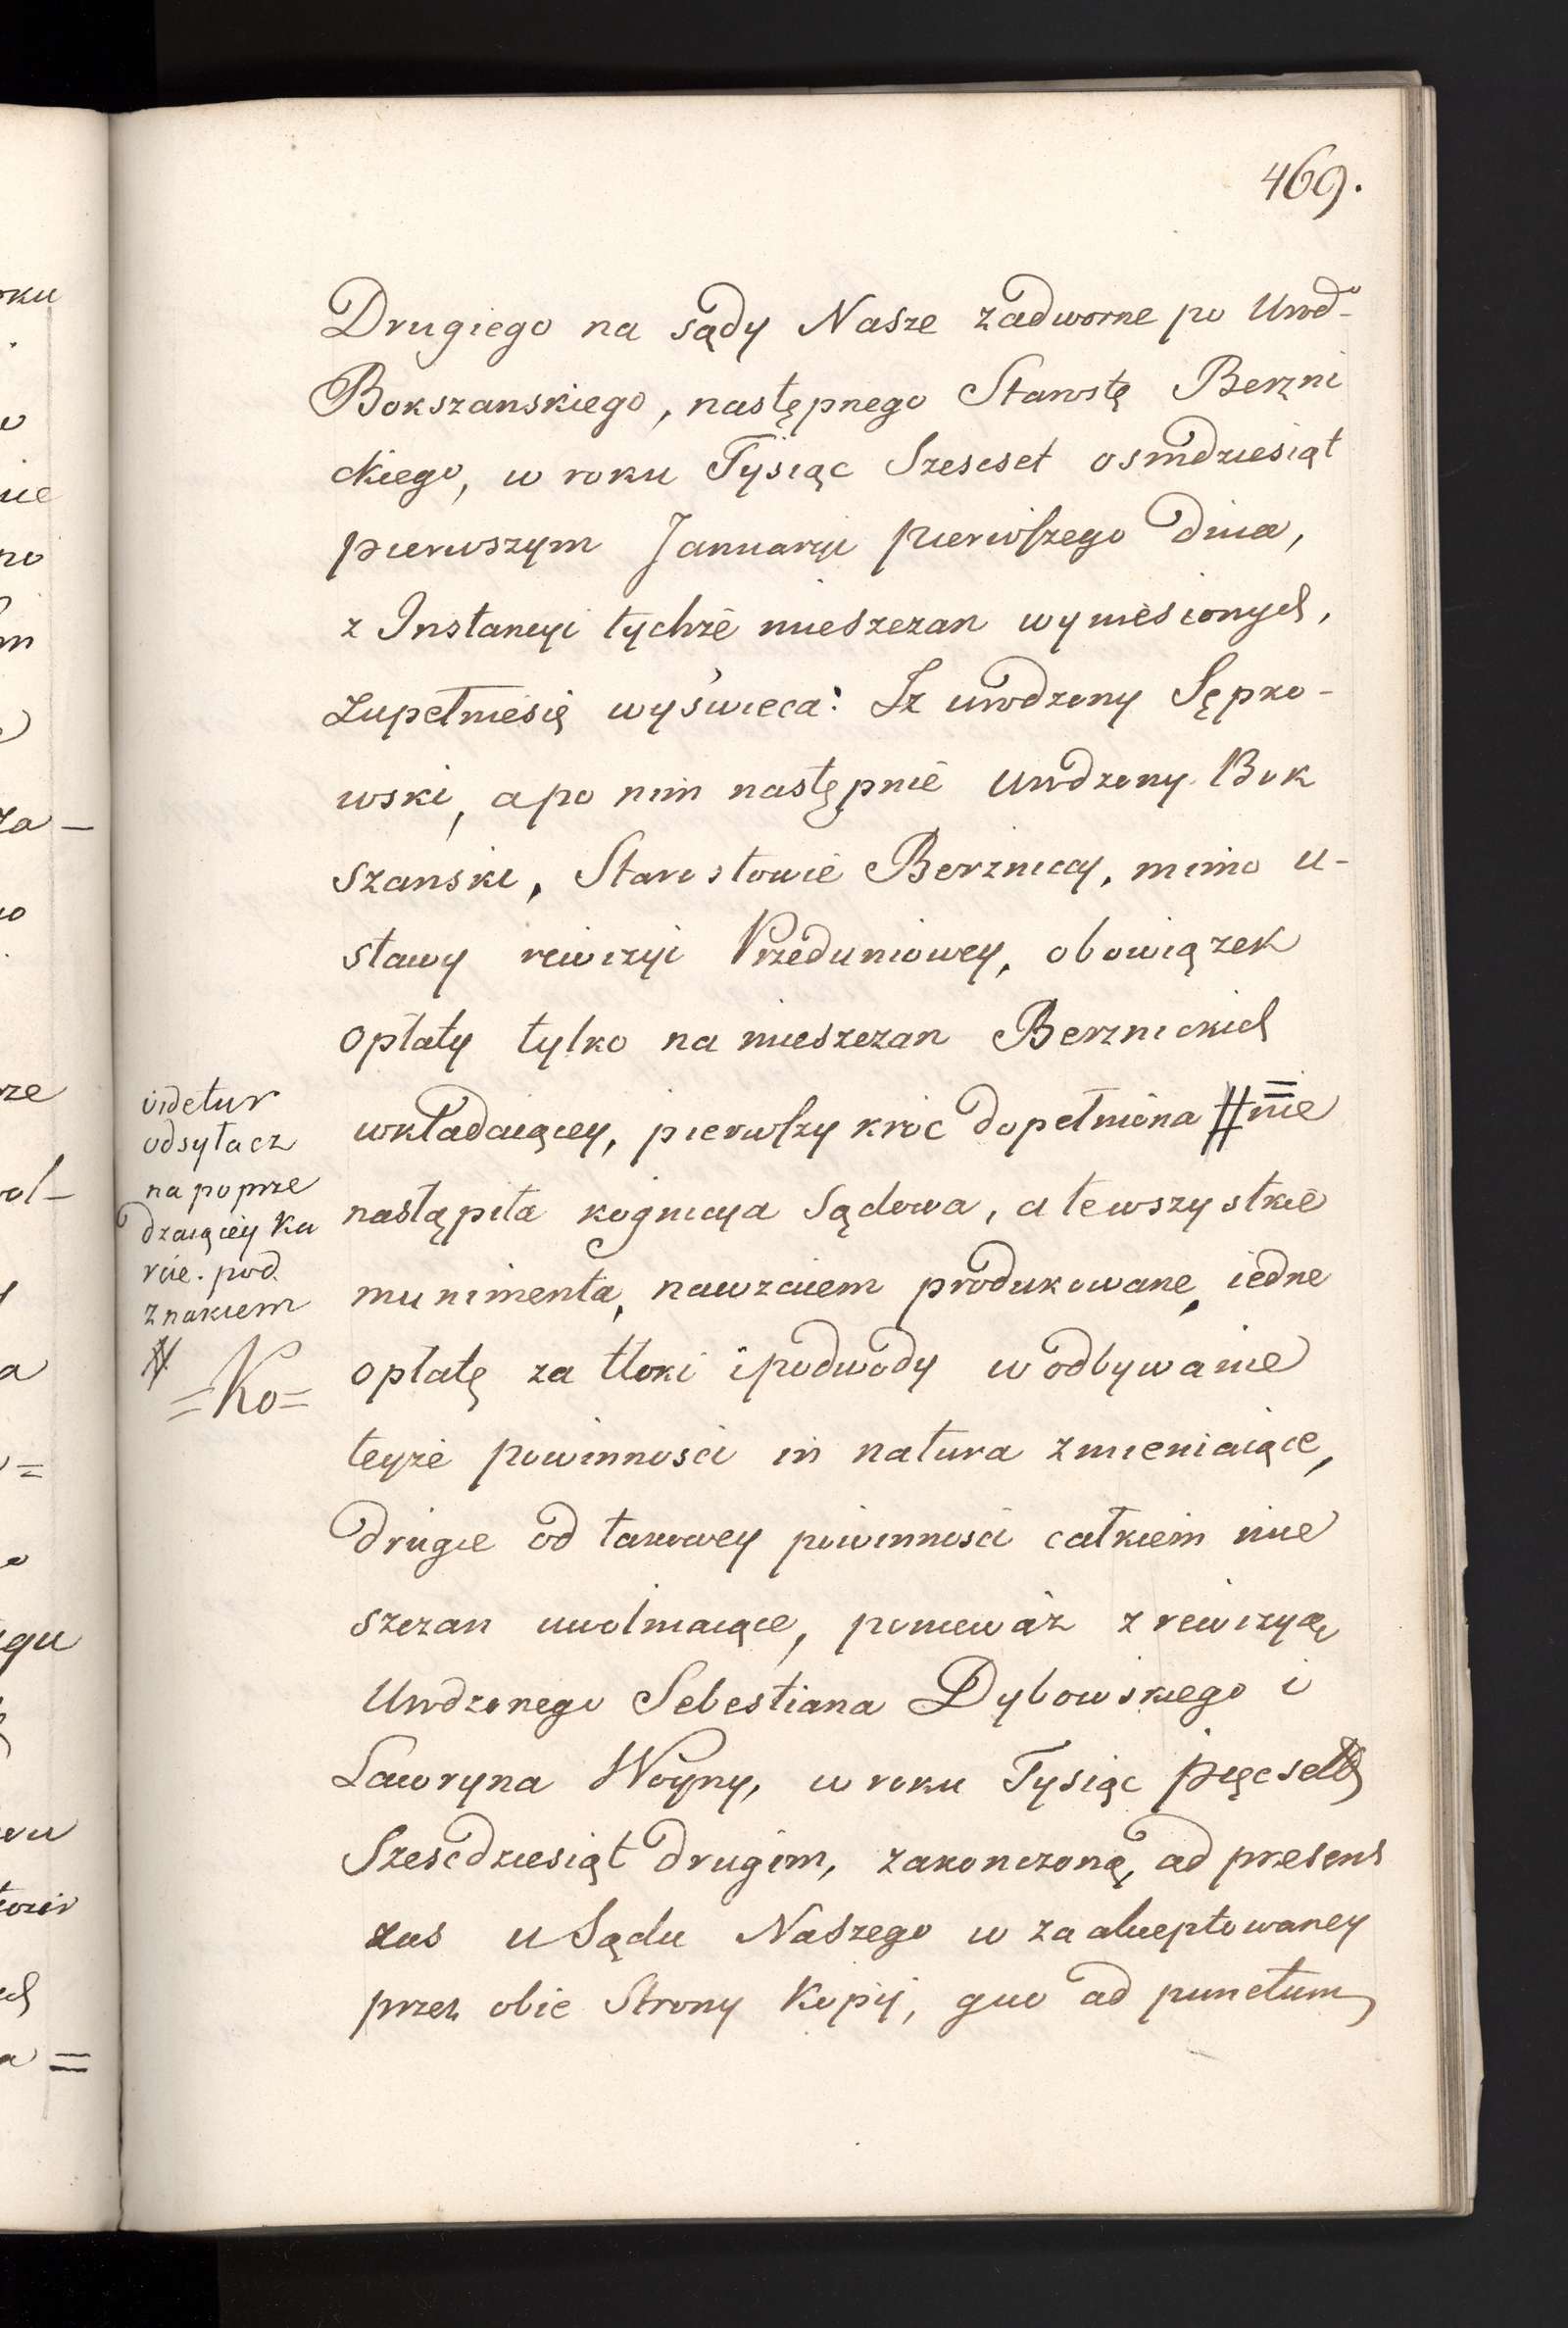 469.
Drugiego na sądy Nasze zadworne po Urod-
Bokszanskiego, następnego Starostę Berzni
ckiego, w roku Tysiąc Szescset osmdziesiąt
pierwszym Januaryi pierwszego dnia,
z Instancyi tychże mieszczan wyniesionych,
zupełniesię wyświeca: Iż urodzony Sępko-
wski, a po nim następnie Urodzony Bok
szanski, Starostowie Berżniccy, mimo u-
stawy rewizyi Przeduniowey, obowiązek
opłaty tylko na mieszczan Berznickich
wkładaiącey, pierwszy kroć dopełniona # nie
nastąpiła kognicya Sądowa, a te wszystkie
munimenta, nawzaiem produkowane, iedne
opłatę za tłoki i podwody w odbywanie
teyże powinnosci in natura zmieniaiące,
drugie od takowey powinnosci całkiem mie
szczan uwolniaiące, ponieważ z rewizyą
Urodzonego Sebestiana Dybowskiego i
Lawryna Woyny, w roku Tysiąc pięcset
Szescdziesiąt drugim, zakonczoną, ad presens
zas u Sądu Naszego w zaakceptowaney
przez obie Strony Kopij, quo ad punctum
videtur
odsyłacz
na poprze
dzaiącey ka
rcie. pod
znakiem
#
=Ko=